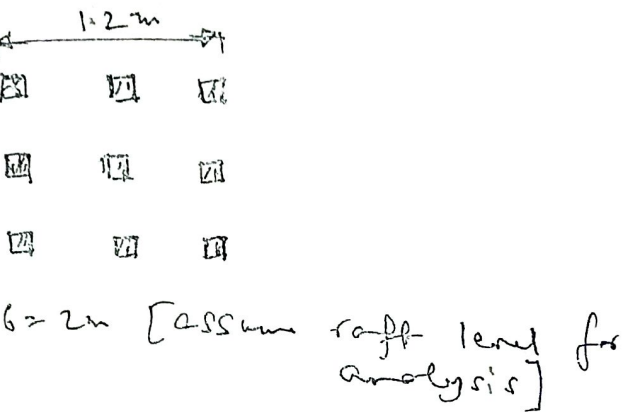 1.2 m
6 = 2m [assume raft level for
analysis]